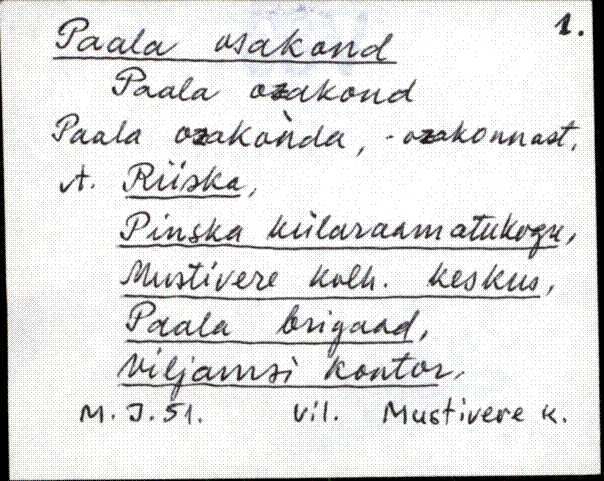 1.
Paala osakond
Paala ozakond
Paala ozakònda, -ozakonnast,
A. Riiska,
Pinska külaraamatukogu,
Mustivere kolh. keskus,
Paala brigaad,
Viljamsi kontor,
M. J. 51. Vil. Mustivere k.